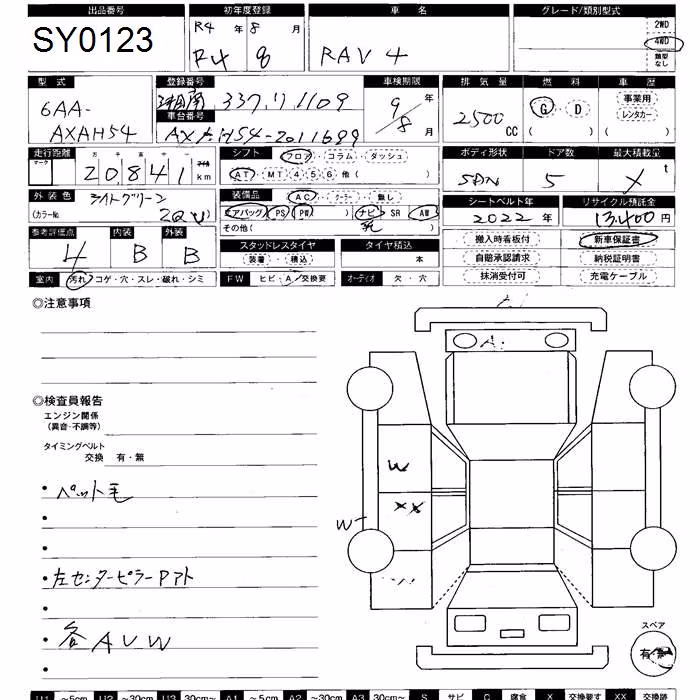 出品番号 初年度登録 車名 グレード/類別型式
SY0123 R4年 8月 RAV4 2WD
R4 8 4WD
類型なし
型式 登録番号 車検期限 排気量 燃料 車歴
6AA- 337 1109 9年 2500CC G・D 事業用
AXAH54 車台番号 8月 ( ) レンタカー
AXAH54-2011689 ( )
走行距離 シフト フロア・コラム・ダッシュ ボディ形状 ドア数 最大積載量
マーク 万 千 百 十 一
20,841 km AT・MT 4 5 6 他( ) SDN 5 t
外装色 装備品 AC・クーラー・無し シートベルト年 リサイクル預託金
(カラーNo. エアバッグ PS PW ) ナビ SR AW 2022年 13,400円
その他( )
参考評価点 内装 外装 搬入時看板付 新車保証書
4 B B スタッドレスタイヤ タイヤ積込 自賠承認請求 納税証明書
装着・積込 本 抹消受付可 充電ケーブル
室内 汚れ・コゲ・穴・スレ・破れ・シミ FW ヒビ・A・交換要 オーディオ 欠・穴
◎注意事項
A
◎検査員報告
エンジン関係
(異音・不調等)
タイミングベルト
交換 有・無
W
・ペット毛
XX
W
・左センターピラーPアト
スペア
・各AUW
有・無
U1 ~5cm U2 ~30cm U3 30cm~ A1 ~5cm A2 ~30cm A3 30cm~ S サビ C 腐食 X 交換要す XX 交換跡